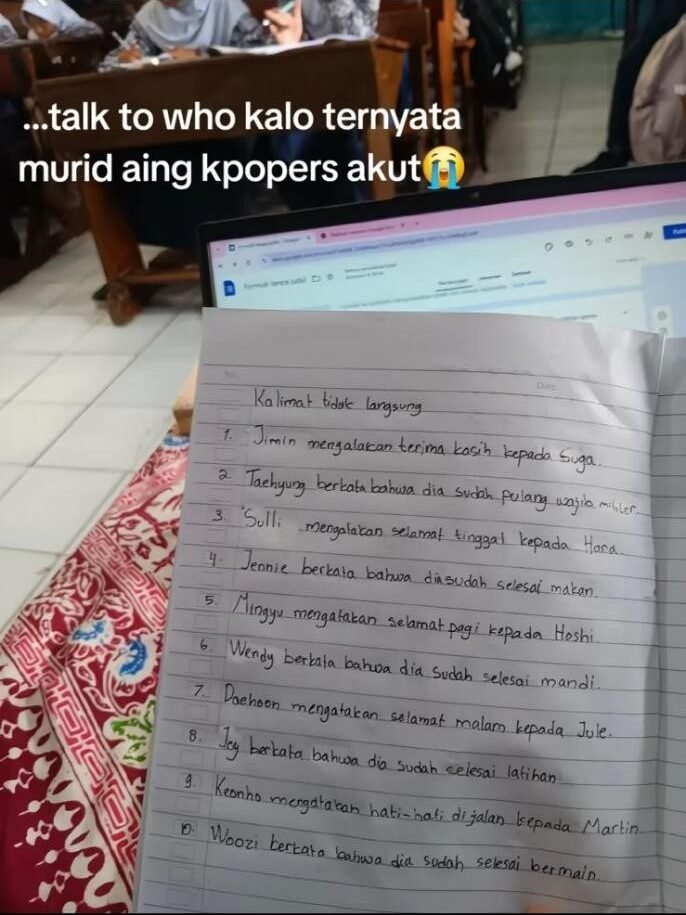 ...talk to who kalo ternyata
murid aing kpopers akut😭
Kalimat tidak langsung
1. Jimin mengatakan terima kasih kepada Suga.
2. Taehyung berkata bahwa dia sudah pulang wajib militer.
3. Sulli mengatakan selamat tinggal kepada Hara.
4. Jennie berkata bahwa dia sudah selesai makan.
5. Mingyu mengatakan selamat pagi kepada Hoshi.
6. Wendy berkata bahwa dia sudah selesai mandi.
7. Daehoon mengatakan selamat malam kepada Jule.
8. Joy berkata bahwa dia sudah selesai latihan.
9. Keonho mengatakan hati-hati di jalan kepada Martin
10. Woozi berkata bahwa dia sudah selesai bermain.